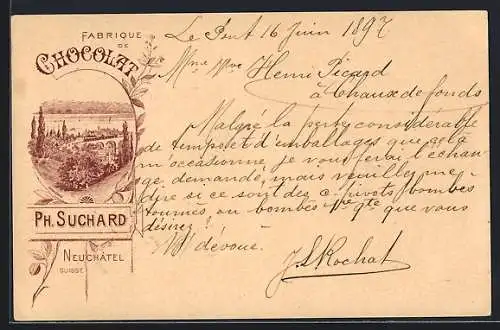 FABRIQUE
DE
CHOCOLAT
PH. SUCHARD
NEUCHÂTEL
SUISSE
Le Pont 16 Juin 1897
Mme Vve Henri Picard
à Chaux de fonds
Malgré la perte considérable
de temps et d'emballages que cela
m'occasionne, je vous ferai l'échan-
ge demandé, mais veuillez me
dire si ce sont des c. pivots bombés
tournés, ou bombés 1re qte que vous
désirez!
dévoué.
JLRochat